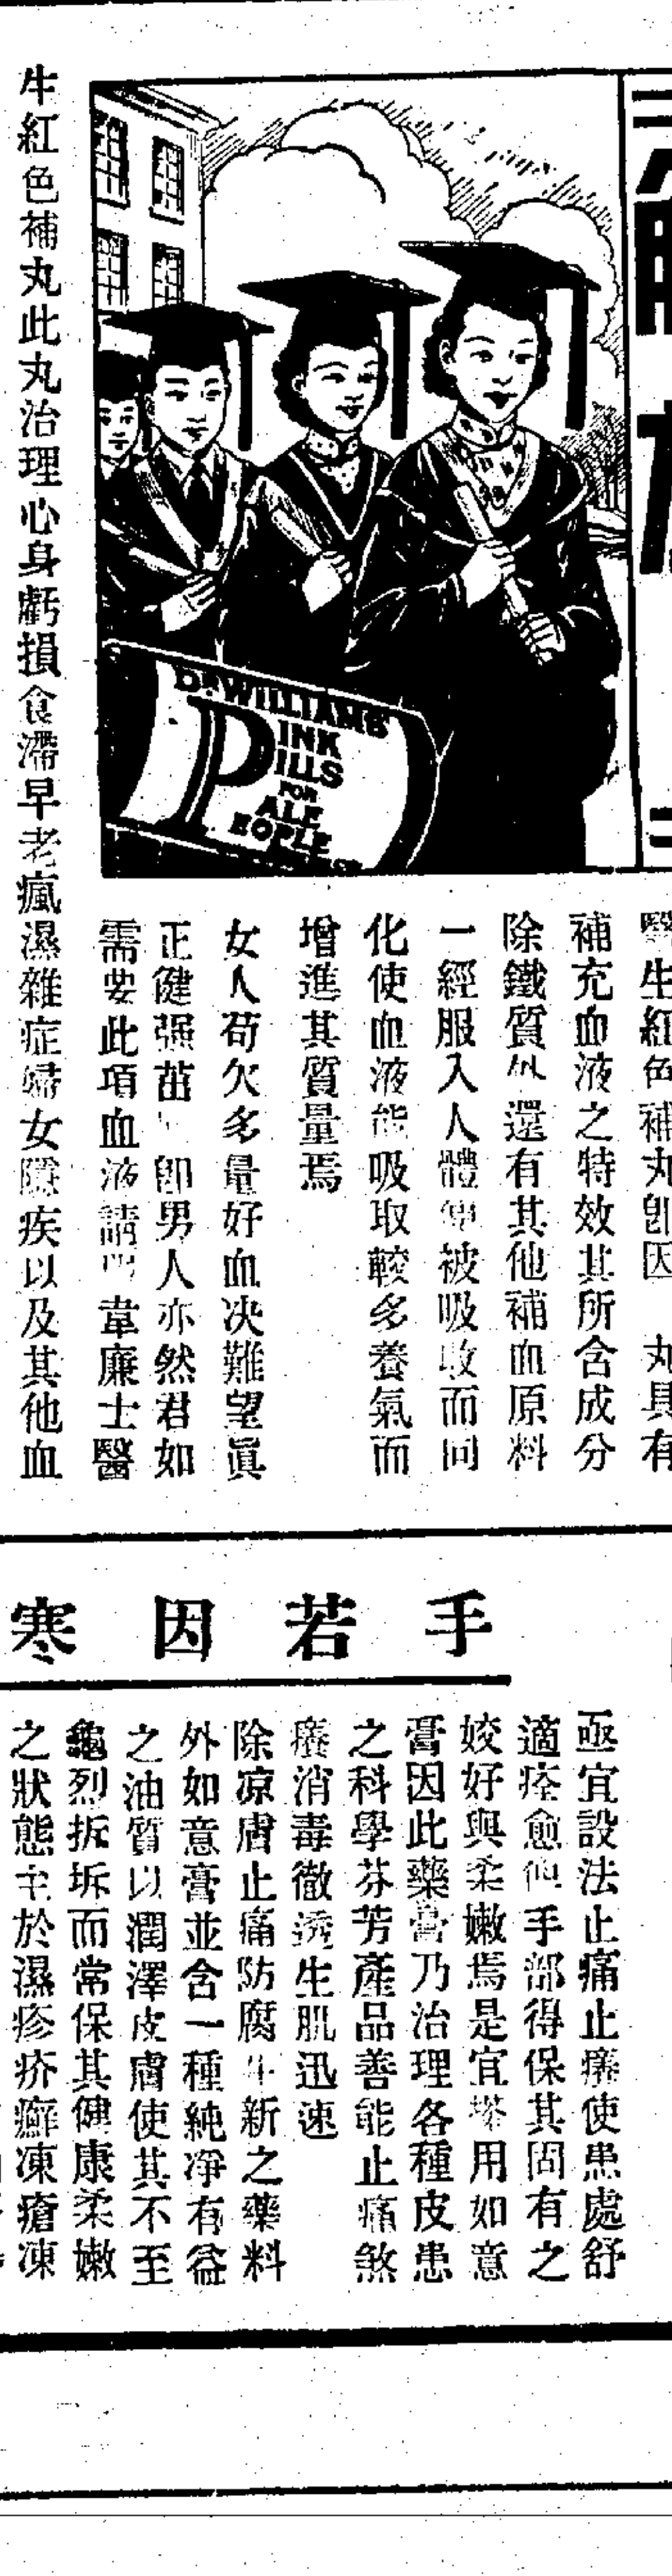 Dr. WILLIAMS'
PINK
PILLS
FOR
PALE
PEOPLE
醫生紅色補丸即因 丸具有
補充血液之特效其所含成分
除鐵質外還有其他補血原料
一經服入人體即被吸收而同
化使血液能吸取較多養氣而
增進其質量焉
女人苟欠多量好血决難望眞
正健强茁 即男人亦然君如
需要此項血液請 韋廉士醫
生紅色補丸此丸治理心身虧損食滯早老瘋濕雜症婦女隱疾以及其他血
手若因寒
亟宜設法止痛止癢使患處舒
適痊愈 手部得保其固有之
姣好與柔嫩焉是宜搽用如意
膏因此藥膏乃治理各種皮患
之科學芬芳產品善能止痛煞
癢消毒徹透生肌迅速
除凉膚止痛防腐生新之藥料
外如意膏並含一種純凈有益
之油質以潤澤皮膚使其不至
龜烈拆坼而常保其健康柔嫩
之狀態主於濕疹疥癬凍瘡凍